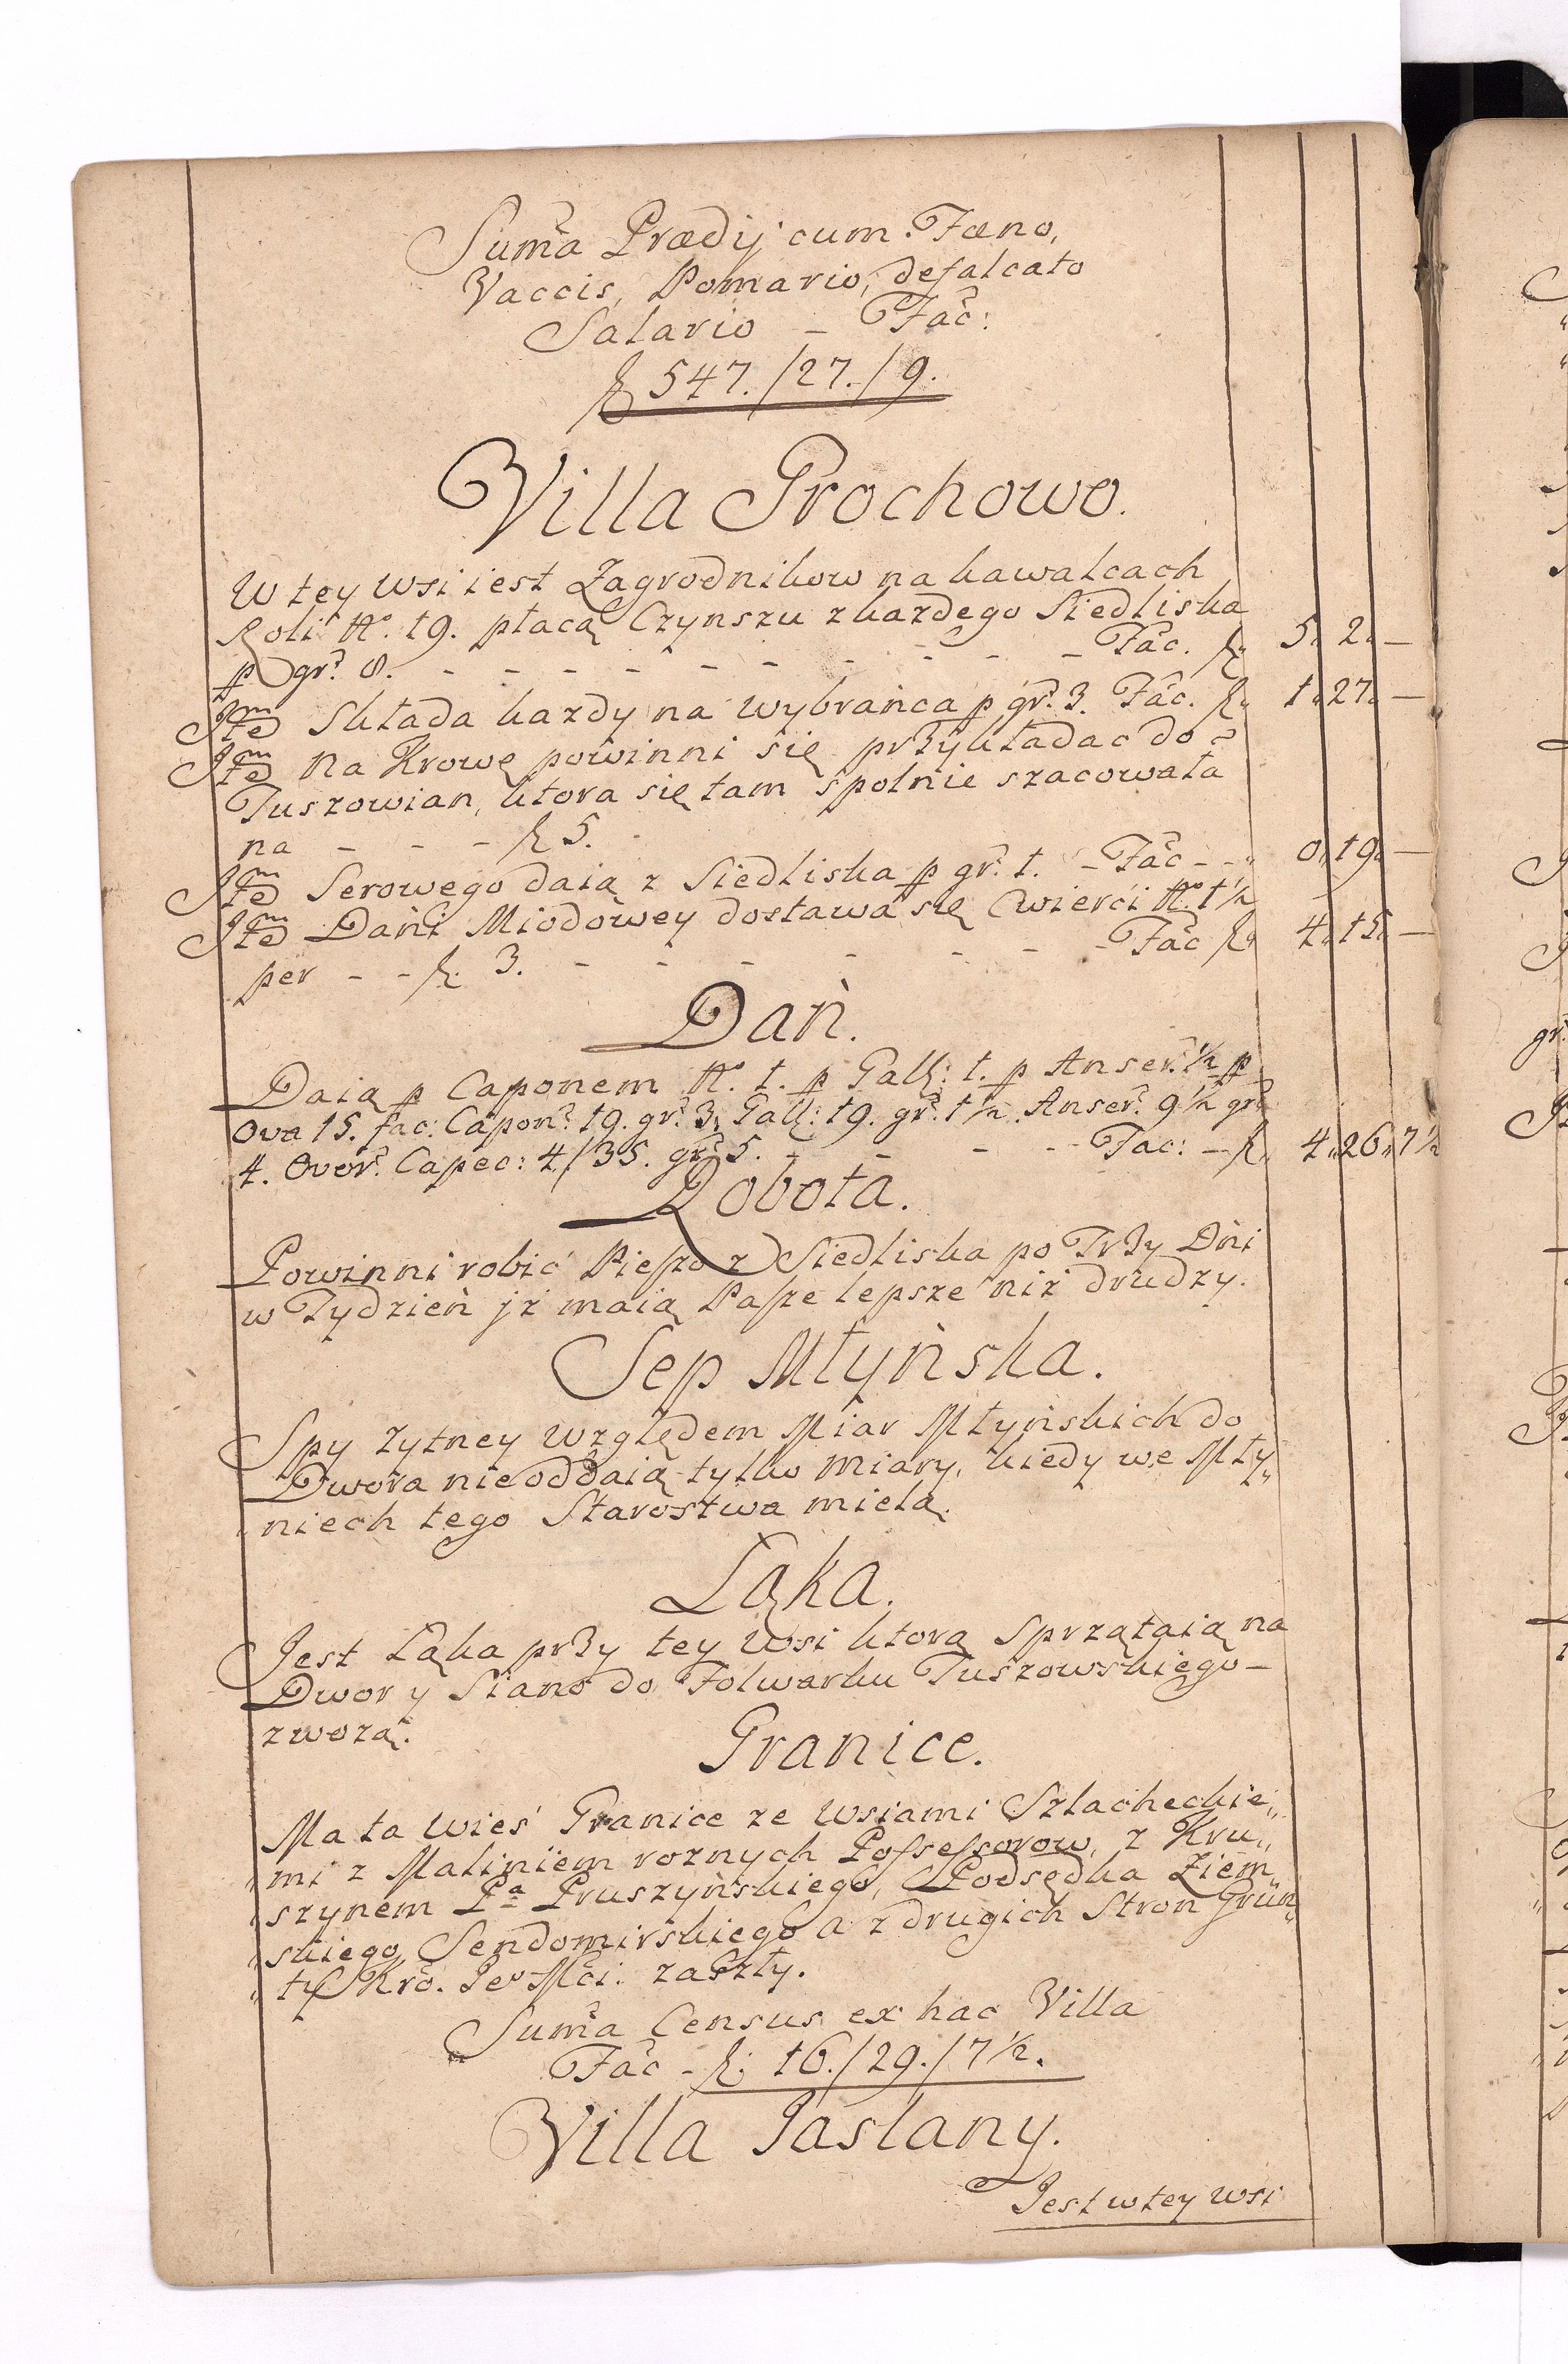 Suma Prædij cum Fæno,
Vaccis, Pomario, defalcato
Salario – Fac:
f 547./27./9.
Villa Grochowo.
W tey Wsi iest Zagrodnikow na kawalcach
Roli No. 19. płacą Czynszu z kazdego Siedliska
p gr. 8. – – – – – – – – – – Fac. f. 5. 2. –
Itm Składa kazdy na wybrańca p gr. 3. Fac. f. 1. 27. –
Itm na Krowę powinni się przykładac do
Tuszowian, ktora się tam spolnie szacowała
na – – – f 5.
Itm Serowego daią z Siedliska p gr. 1. – Fac – – 0. 19. –
Itm Dani Miodowey dostawa się Cwierci No. 1½
per – – f. 3. – – – – – – Fac f. 4. 15. –
Dań.
Daią p Caponem No. 1. p Gall: 1. p Anser. ½ p
Ova 15. fac: Capon. 19. gr. 3. Gall: 19. gr. 1½. Anser. 9½ gr.
4. Ovor. Capec: 4/35. gr. 5. – – – – Fac: – f. 4. 26. 7½
Robota.
Powinni robić Pieszo z Siedliska po Trzy Dni
w Tydzień jż maią Pasze lepsze niż drudzy.
Sep Młyńska.
Spy zytney względem Miar Młyńskich do
Dwora nieoddaią tylko miary, kiedy we Mły„
niech tego Starostwa mielą.
Ląka.
Jest Ląka przy tey Wsi ktorą Sprzątaią na
Dwor y Siano do Folwarku Tuszowskiego –
zwozą.
Granice.
Ma ta Wieś Granice ze Wsiami Szlacheckie„
mi z Maliniem roznych Possessorow, z Kru„
szynem Pa Pruszyńskiego, Podsędka Ziem„
skiego Sendomirskiego a z drugich Stron Grun„
ty Kró. Jeo Mci. zaszły.
Suma Census ex hac Villa
Fac – f. 16./29./7½.
Villa Jaslany.
Jest w tey wsi